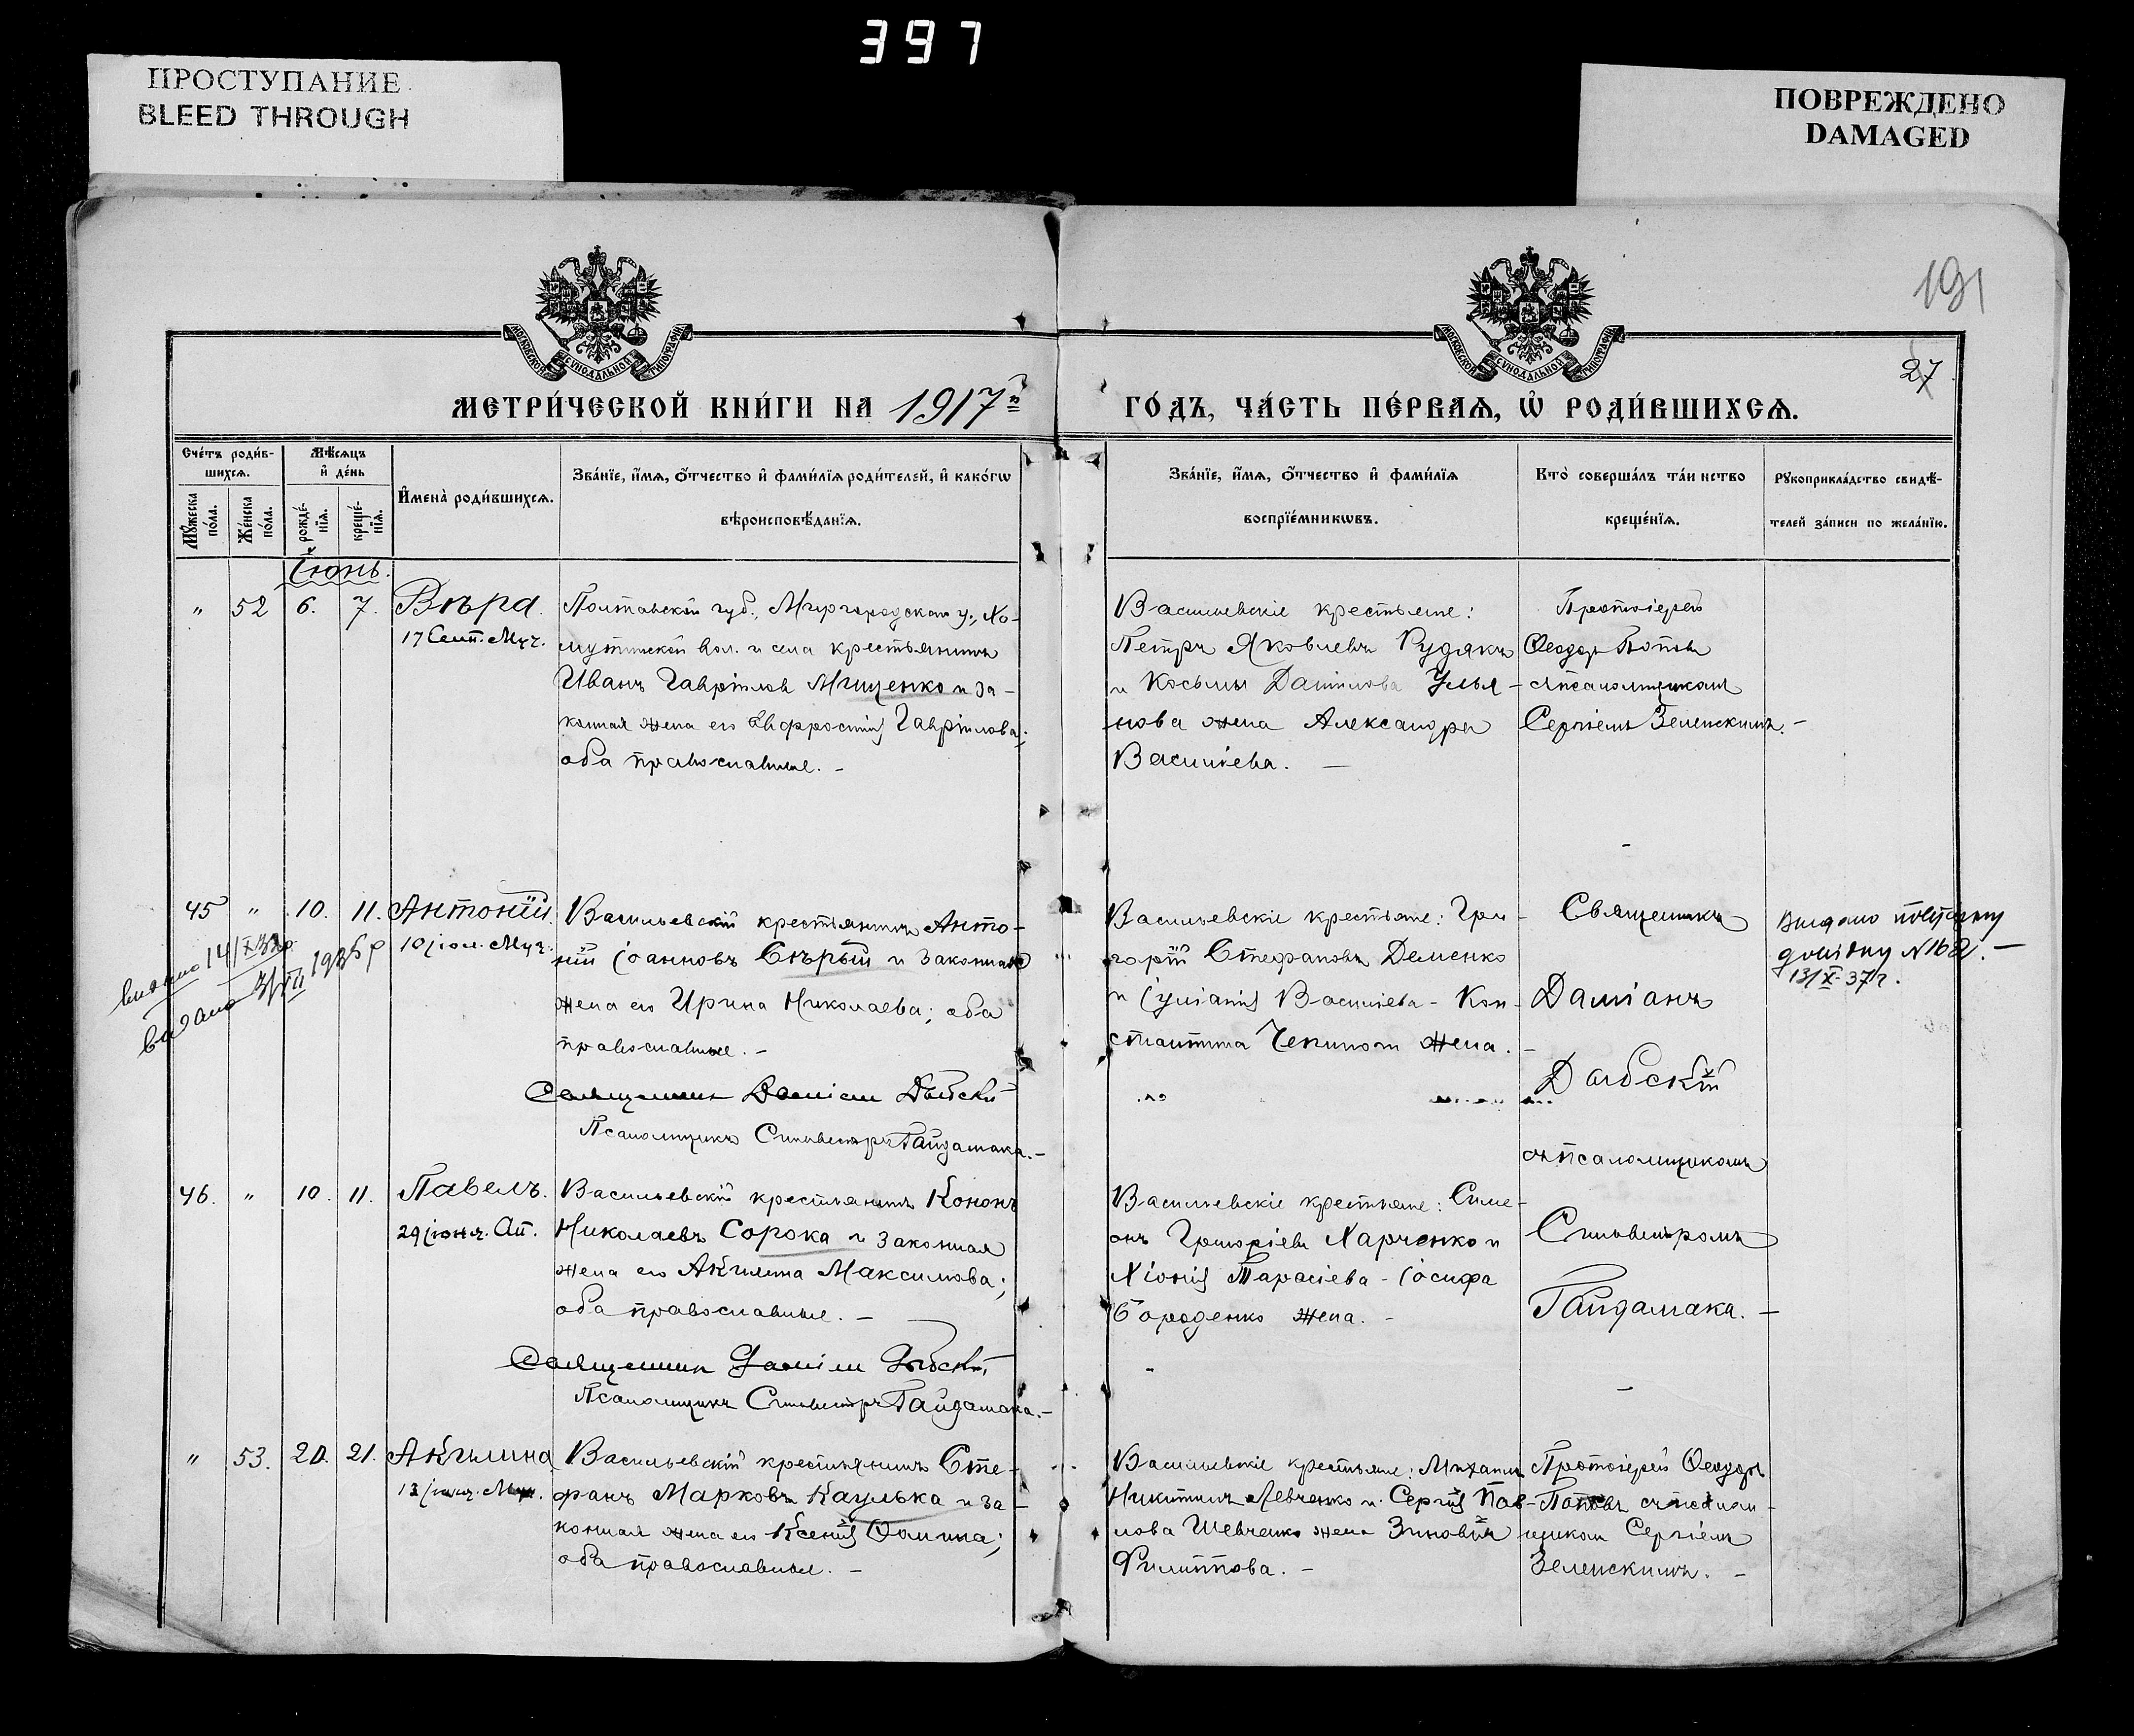 397
ПРОСТУПАНИЕ
BLEED THROUGH
ПОВРЕЖДЕНО
DAMAGED
191
27
МОСКОВСКОЙ СѴНОДАЛЬНОЙ ТИПОГРАФІИ
МОСКОВСКОЙ СѴНОДАЛЬНОЙ ТИПОГРАФІИ
МЕТРИ́ЧЕСКОЙ КНИ́ГИ НА 1917й
ГО́ДЪ, ЧА́СТЬ ПЕ́РВАѦ, Ѡ҆ РОДИ́ВШИХСѦ.
Сче́тъ роди́в-
шихсѧ.
Мꙋ́жеска по́ла.
Же́нска по́ла.
Мѣ́сѧцъ
и҆ де́нь
рожде́-нїѧ.
креще́-нїѧ.
И҆мена̀ роди́вшихсѧ.
Зва́нїе, и҆́мѧ, ѻ҆́тчество и҆ фами́лїѧ роди́телей, и҆ како́гѡ
вѣроисповѣ́данїѧ.
Зва́нїе, и҆́мѧ, ѻ҆́тчество и҆ фами́лїѧ
воспрїе́мникѡвъ.
Кто̀ соверша́лъ та́инство
креще́нїѧ.
Рꙋкоприкла́дство свидѣ́-
телей за́писи по жела́нїю.
Іюнь.
" 52 6. 7. Вѣра.
17 Сент. Муч.
Полтавской губ., Миргородскаго у., Хо-
мутинской вол. и села крестьянинъ
Иванъ Гавріиловъ Мищенко и за-
конная жена его Евфросинія Гавріилова;
оба православные. -
Васильевскіе крестьяне:
Петръ Яковлевъ Рудякъ
и Косьмы Даніилова Улья-
нова жена Александра
Васильева. —
Протоіерей
Ѳеодоръ Поповъ
съ псаломщикомъ
Сергіемъ Зеленскимъ. -
45 " 10. 11. Антоній.
10 іюл. Муч.
Васильевскій крестьянинъ Анто-
ній Іоанновъ Сѣрый и законная
жена его Ирина Николаева; оба
православные. -
Священникъ Даміанъ Дабскій
Псаломщикъ Сильвестръ Гайдамака. -
Васильевскіе крестьяне: Гри-
горій Стефановъ Деменко
и Іуліанія Васильева - Кон-
стантина Чепиноги жена. -
Священникъ
Даміанъ
Дабскій
съ псаломщикомъ
Сильвестромъ
Гайдамака. -
Видано повторну
довідку N 162. -
13/X-37 г.
46. " 10. 11. Павелъ.
29 іюня. Ап.
Васильевскій крестьянинъ Кононъ
Николаевъ Сорока и законная
жена его Акилина Максимова;
оба православные. —
Священникъ Даміанъ Дабскій
Псаломщикъ Сильвестръ Гайдамака. -
Васильевскіе крестьяне: Симе-
онъ Григоріевъ Харченко и
Хіонія Тарасіева - Іосифа
Бороденко жена. -
" 53. 20. 21. Акилина
13 іюня. Муч.
Васильевскій крестьянинъ Сте-
фанъ Марковъ Каулька и за-
конная жена его Ксенія Ѳомина;
оба православные. -
Васильевскіе крестьяне: Михаилъ
Никитинъ Левченко и Сергія Пав-
лова Шевченко жена Зиновія
Филиппова. -
Протоіерей Ѳеодоръ
Поповъ съ псалом-
щикомъ Сергіемъ
Зеленскимъ. -